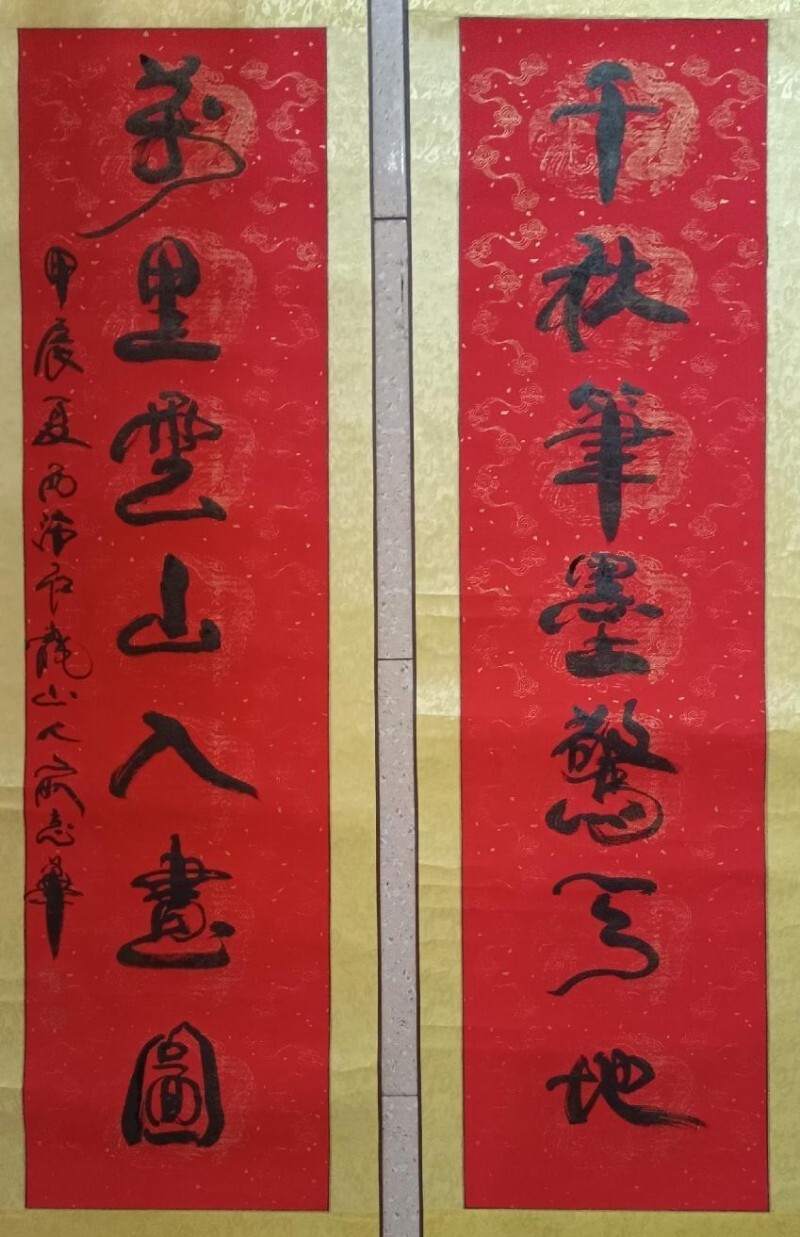 千秋筆墨驚天地
萬里雲山入畫圖
甲辰夏西泠印龍山人俞志華